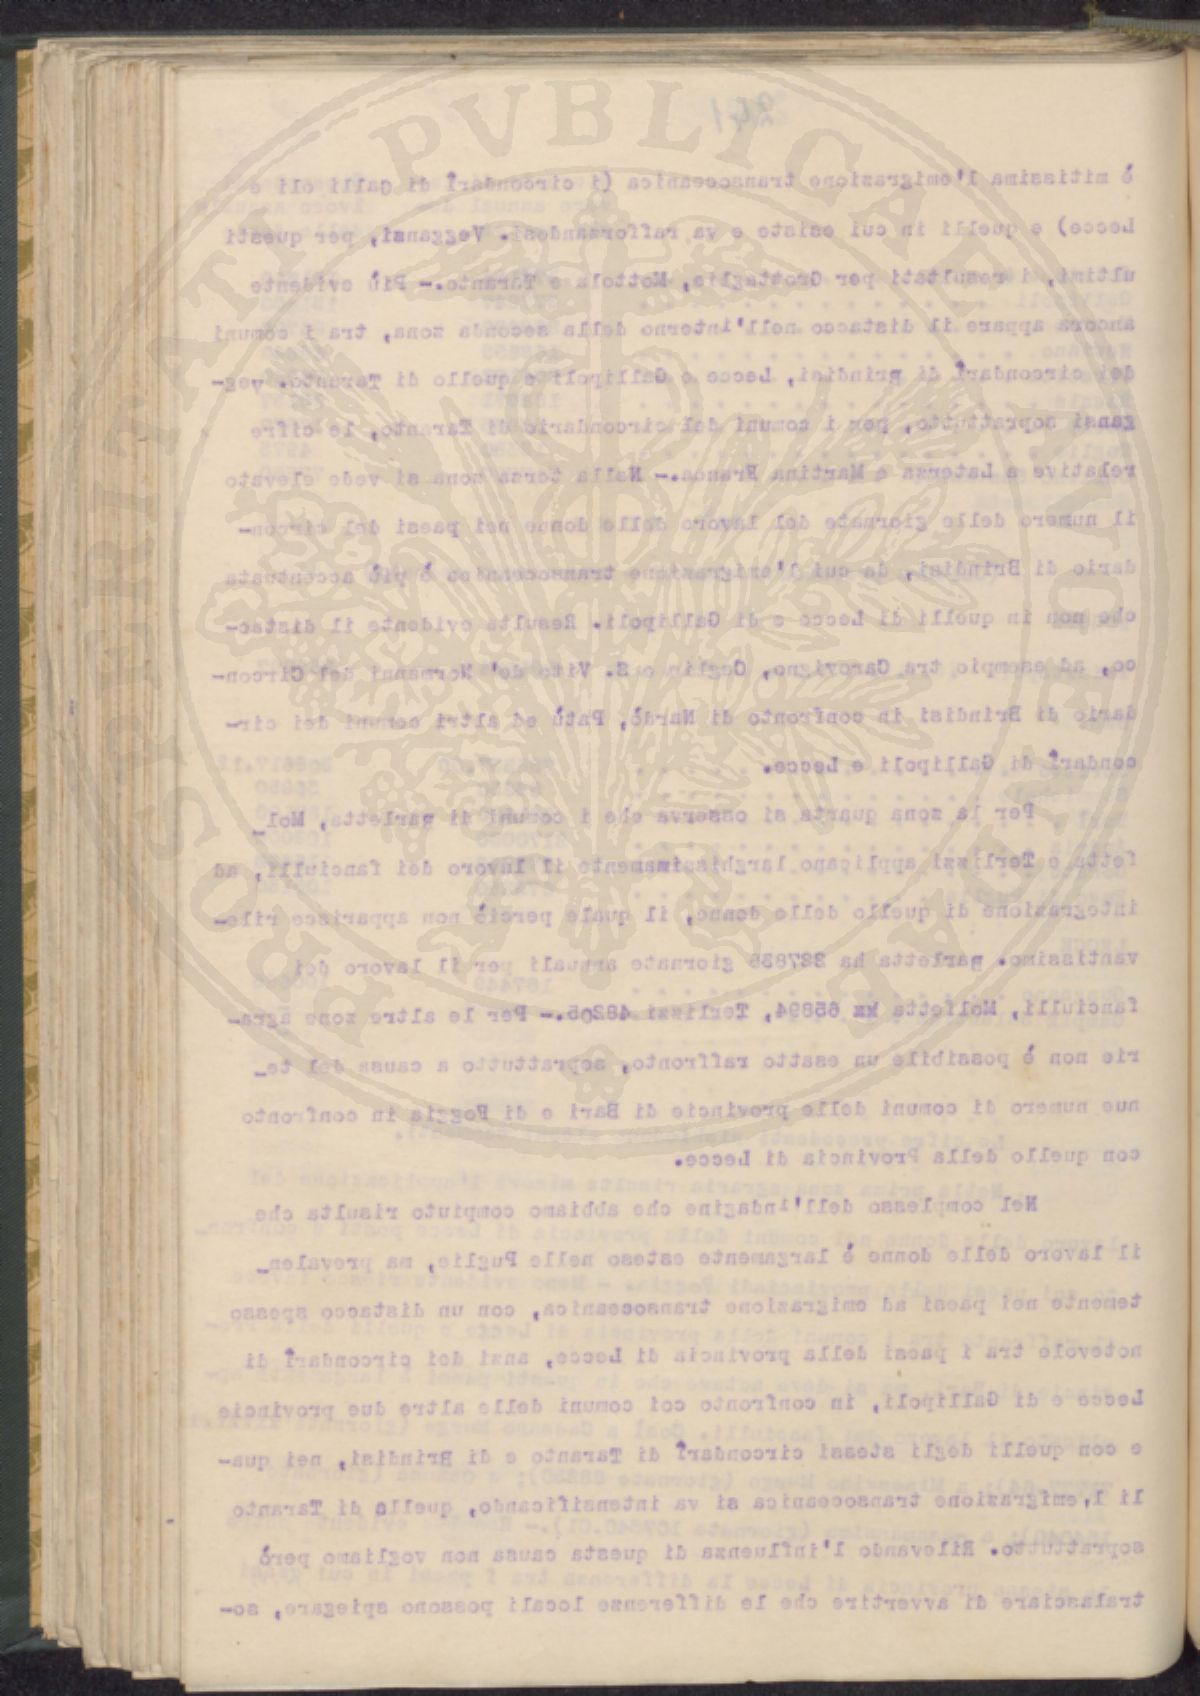 241
è mitissima l'emigrazione transoceanica (i circondarî di Galli oli e
Lecce) e quelli in cui esiste e va rafforzandosi. Veggansi, per questi
ultimi, i resultati per Grottaglie, Mottola e Taranto.- Più evidente
ancora appare il distacco nell'interno della seconda zona, tra i comuni
dei circondarî di Brindisi, Lecce e Gallipoli e quello di Taranto. Veg-
gansi soprattutto, per i comuni del circondario di Taranto, le cifre
relative a Laterza e Martina Franca.- Nella terza zona si vede elevato
il numero delle giornate del lavoro delle donne nei paesi del circon-
dario di Brindisi, da cui l'emigrazione transoceanica è più accentuata
che non in quelli di Lecce e di Gallipoli. Resulta evidente il distac-
co, ad esempio tra Carovigno, Ceglie e S. Vito de' Normanni del Circon-
dario di Brindisi in confronto di Nardò, Patù ed altri comuni dei cir-
condarî di Gallipoli e Lecce.
Per la zona quarta si osserva che i comuni di Barletta, Mol_
fetta e Terlizzi applicano larghissimamente il lavoro dei fanciulli, ad
integrazione di quello delle donne, il quale perciò non apparisce rile-
vantissimo. Barletta ha 227838 giornate annuali per il lavoro dei
fanciulli, Molfetta xx 65894, Terlizzi 48205.- Per le altre zone agra-
rie non è possibile un esatto raffronto, soprattutto a causa del te_
nue numero di comuni delle provincie di Bari e di Foggia in confronto
con quello della Provincia di Lecce.
Nel complesso dell'indagine che abbiamo compiuto risulta che
il lavoro delle donne è largamente esteso nelle Puglie, ma prevalen_
temente nei paesi ad emigrazione transoceanica, con un distacco spesso
notevole tra i paesi della provincia di Lecce, anzi dei circondarî di
Lecce e di Gallipoli, in confronto coi comuni delle altre due provincie
e con quelli degli stessi circondarî di Taranto e di Brindisi, nei qua-
li l,emigrazione transoceanica si va intensificando, quello di Taranto
soprattutto. Rilevando l'influenza di questa causa non vogliamo però
tralasciare di avvertire che le differenze locali possono spiegare, so-